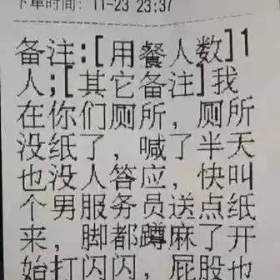 下单时间：11-23 23:37
备注:[用餐人数]1
人;[其它备注]我
在你们厕所，厕所
没纸了，喊了半天
也没人答应，快叫
个男服务员送点纸
来，脚都蹲麻了开
始打闪闪，屁股也